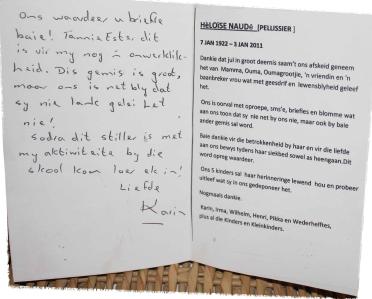 Ons waardeer u briefie
baie! Tannie Ester dit
is vir my nog 'n onwerklik-
heid. Dis gemis is groot,
maar ons is net bly dat
sy nie lank gelei het
nie!
Sodra dit stiller is met
my aktiwiteite by die
skool kom loer ek in!
Liefde
Karin
HèLOÏSE NAUDé [PELLISSIER]
7 JAN 1922 – 3 JAN 2011
Dankie dat jul in groot deernis saam't ons afskeid geneem
het van Mamma, Ouma, Oumagrootjie, 'n vriendin en 'n
baanbreker vrou wat met geesdrif en lewensblyheid geleef
het.
Ons is oorval met oproepe, sms'e, briefies en blomme wat
aan ons toon dat sy nie net by ons nie, maar ook by baie
ander gemis sal word.
Baie dankie vir die betrokkenheid by haar en vir die liefde
aan ons bewys tydens haar siekbed sowel as heengaan. Dit
word opreg waardeer.
Ons 5 kinders sal haar herinneringe lewend hou en probeer
uitleef wat sy in ons gedeponeer het.
Nogmaals dankie.
Karin, Irma, Wilhelm, Henri, Pikka en Wederhelftes,
plus al die Kinders en Kleinkinders.